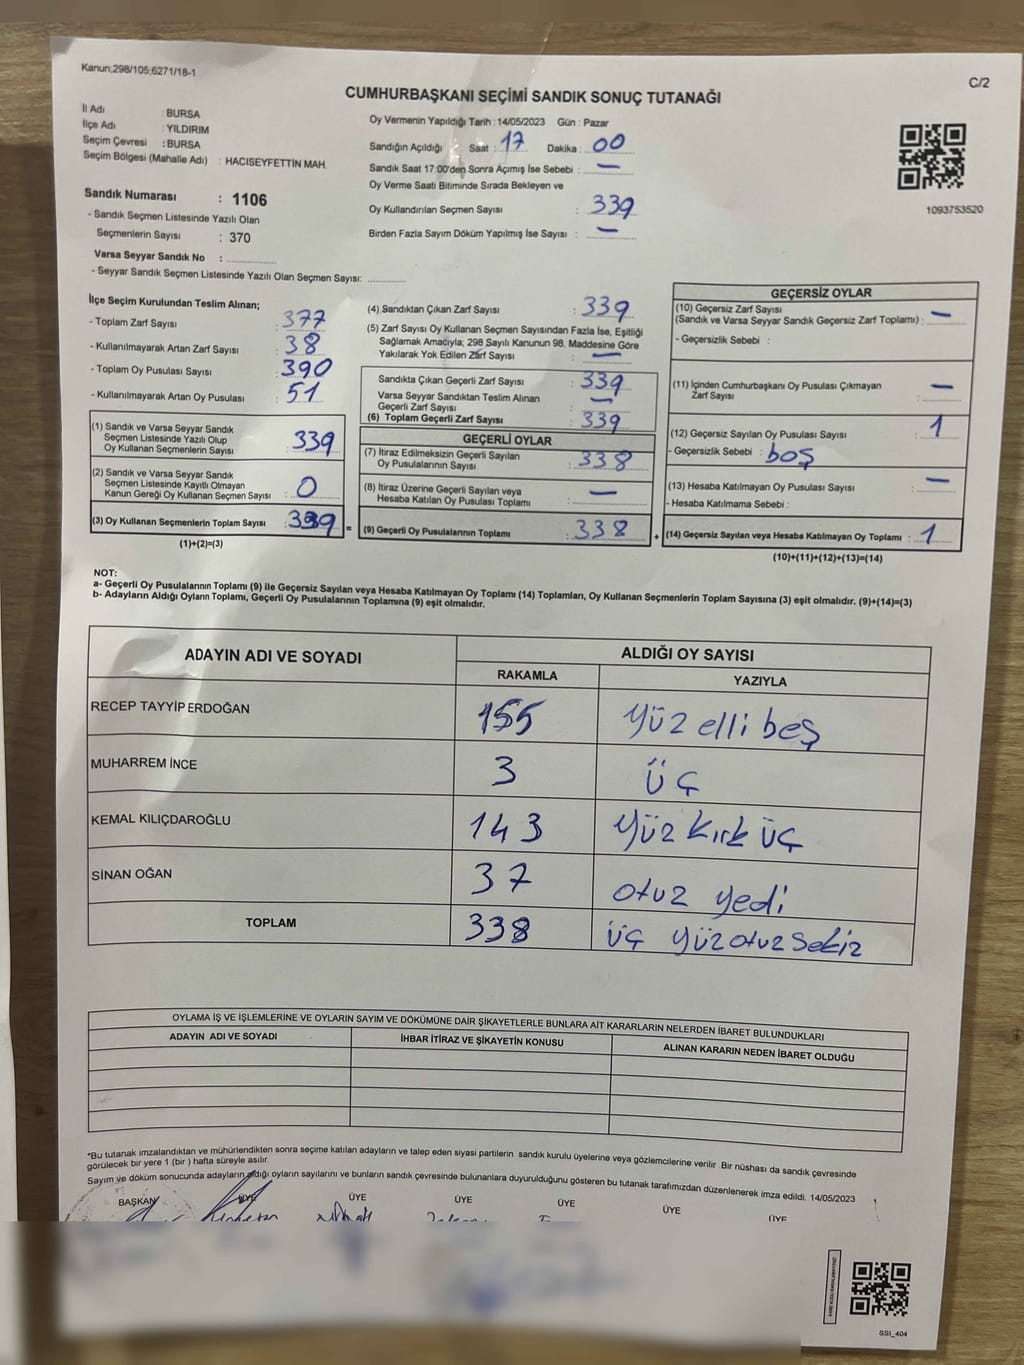 Kanun;298/105;6271/18-1
C/2
CUMHURBAŞKANI SEÇİMİ SANDIK SONUÇ TUTANAĞI
İl Adı : BURSA
İlçe Adı : YILDIRIM
Seçim Çevresi : BURSA
Seçim Bölgesi (Mahalle Adı) : HACISEYFETTİN MAH.
Sandık Numarası : 1106
- Sandık Seçmen Listesinde Yazılı Olan
Seçmenlerin Sayısı : 370
Varsa Seyyar Sandık No :
- Seyyar Sandık Seçmen Listesinde Yazılı Olan Seçmen Sayısı:
Oy Vermenin Yapıldığı Tarih : 14/05/2023 Gün : Pazar
Sandığın Açıldığı Saat : 17 Dakika : 00
Sandık Saat 17:00'den Sonra Açımış İse Sebebi : —
Oy Verme Saati Bitiminde Sırada Bekleyen ve
Oy Kullandırılan Seçmen Sayısı : 339
Birden Fazla Sayım Döküm Yapılmış İse Sayısı : —
1093753520
İlçe Seçim Kurulundan Teslim Alınan;
- Toplam Zarf Sayısı : 377
- Kullanılmayarak Artan Zarf Sayısı : 38
- Toplam Oy Pusulası Sayısı : 390
- Kullanılmayarak Artan Oy Pusulası : 51
(1) Sandık ve Varsa Seyyar Sandık
Seçmen Listesinde Yazılı Olup
Oy Kullanan Seçmenlerin Sayısı : 339
(2) Sandık ve Varsa Seyyar Sandık
Seçmen Listesinde Kayıtlı Olmayan
Kanun Gereği Oy Kullanan Seçmen Sayısı : 0
(3) Oy Kullanan Seçmenlerin Toplam Sayısı : 339 =
(1)+(2)=(3)
(4) Sandıktan Çıkan Zarf Sayısı : 339
(5) Zarf Sayısı Oy Kullanan Seçmen Sayısından Fazla İse, Eşitliği
Sağlamak Amacıyla; 298 Sayılı Kanunun 98. Maddesine Göre
Yakılarak Yok Edilen Zarf Sayısı : —
Sandıkta Çıkan Geçerli Zarf Sayısı : 339
Varsa Seyyar Sandıktan Teslim Alınan
Geçerli Zarf Sayısı : —
(6) Toplam Geçerli Zarf Sayısı : 339
GEÇERLİ OYLAR
(7) İtiraz Edilmeksizin Geçerli Sayılan
Oy Pusulalarının Sayısı : 338
(8) İtiraz Üzerine Geçerli Sayılan veya
Hesaba Katılan Oy Pusulası Toplamı : —
(9) Geçerli Oy Pusulalarının Toplamı : 338 +
GEÇERSİZ OYLAR
(10) Geçersiz Zarf Sayısı
(Sandık ve Varsa Seyyar Sandık Geçersiz Zarf Toplamı) : —
- Geçersizlik Sebebi :
(11) İçinden Cumhurbaşkanı Oy Pusulası Çıkmayan
Zarf Sayısı : —
(12) Geçersiz Sayılan Oy Pusulası Sayısı : 1
- Geçersizlik Sebebi : boş
(13) Hesaba Katılmayan Oy Pusulası Sayısı : —
- Hesaba Katılmama Sebebi :
(14) Geçersiz Sayılan veya Hesaba Katılmayan Oy Toplamı : 1
(10)+(11)+(12)+(13)=(14)
NOT:
a- Geçerli Oy Pusulalarının Toplamı (9) ile Geçersiz Sayılan veya Hesaba Katılmayan Oy Toplamı (14) Toplamları, Oy Kullanan Seçmenlerin Toplam Sayısına (3) eşit olmalıdır. (9)+(14)=(3)
b- Adayların Aldığı Oyların Toplamı, Geçerli Oy Pusulalarının Toplamına (9) eşit olmalıdır.
ADAYIN ADI VE SOYADI
ALDIĞI OY SAYISI
RAKAMLA YAZIYLA
RECEP TAYYİP ERDOĞAN 155 yüz elli beş
MUHARREM İNCE 3 üç
KEMAL KILIÇDAROĞLU 143 yüz kırk üç
SİNAN OĞAN 37 otuz yedi
TOPLAM 338 üç yüz otuz sekiz
OYLAMA İŞ VE İŞLEMLERİNE VE OYLARIN SAYIM VE DÖKÜMÜNE DAİR ŞİKAYETLERLE BUNLARA AİT KARARLARIN NELERDEN İBARET BULUNDUKLARI
ADAYIN ADI VE SOYADI İHBAR İTİRAZ VE ŞİKAYETİN KONUSU ALINAN KARARIN NEDEN İBARET OLDUĞU
*Bu tutanak imzalandıktan ve mühürlendikten sonra seçime katılan adayların ve talep eden siyasi partilerin sandık kurulu üyelerine veya gözlemcilerine verilir. Bir nüshası da sandık çevresinde
görülecek bir yere 1 (bir ) hafta süreyle asılır.
Sayım ve döküm sonucunda adayların aldığı oyların sayılarını ve bunların sandık çevresinde bulunanlara duyurulduğunu gösteren bu tutanak tarafımızdan düzenlenerek imza edildi. 14/05/2023
BAŞKAN ÜYE ÜYE ÜYE ÜYE ÜYE ÜYE
SSI_404